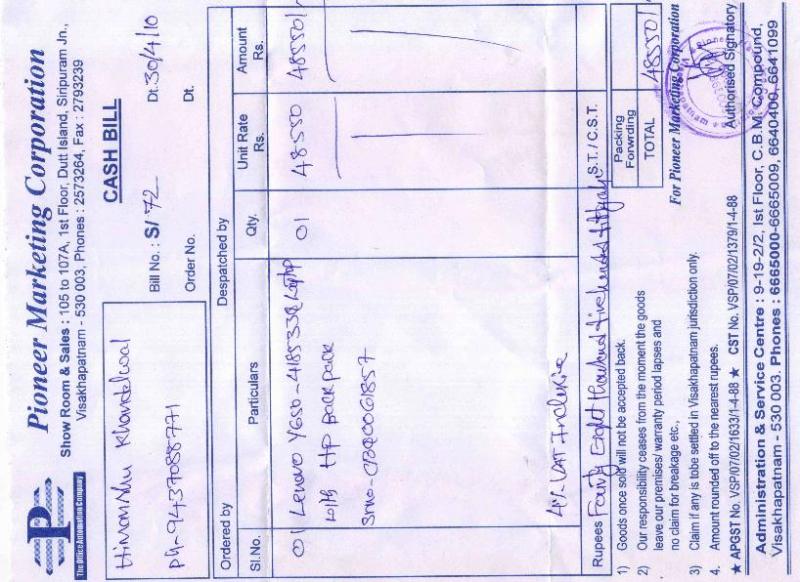 Pioneer Marketing Corporation
The Office Automation Company
Show Room & Sales : 105 to 107A, 1st Floor, Dutt Island, Siripuram Jn.,
Visakhapatnam - 530 003, Phones : 2573264, Fax : 2793239
CASH BILL
Himanshu Khandelwal
Ph-9437088771
Bill No. : S/ 72 Dt. 30/4/10
Order No. Dt.
Ordered by Despatched by
Sl.No. Particulars Qty. Unit Rate Rs. Amount Rs.
01 Lenovo Y650-4185338 Laptop 01 48550 48550/-
with HP Backpack
Srno-CB00061857
4% VAT Inclusive
Rupees Fourty Eight thousand five hundred fifty only S.T. / C.S.T.
Packing
Forwrding
TOTAL 48550/-
1) Goods once sold will not be accepted back.
2) Our responsibility ceases from the moment the goods
leave our premises/ warranty period lapses and
no claim for breakage etc.,
3) Claim if any is tobe settled in Visakhapatnam jurisdiction only.
4. Amount rounded off to the nearest rupees.
For Pioneer Marketing Corporation
Authorised Signatory
★ APGST No. VSP/07/02/1633/1-4-88 ★ CST No. VSP/07/02/1379/1-4-88
Administration & Service Centre : 9-19-2/2, 1st Floor, C.B.M. Compound,
Visakhapatnam - 530 003. Phones : 6665000-6665009, 6640406, 6641099